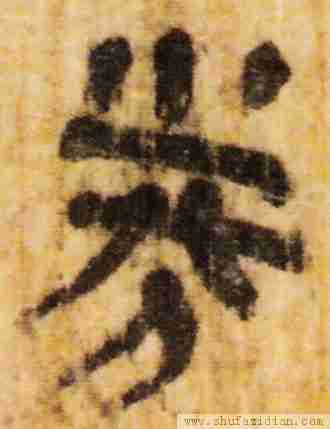 券
www.shufazidian.com